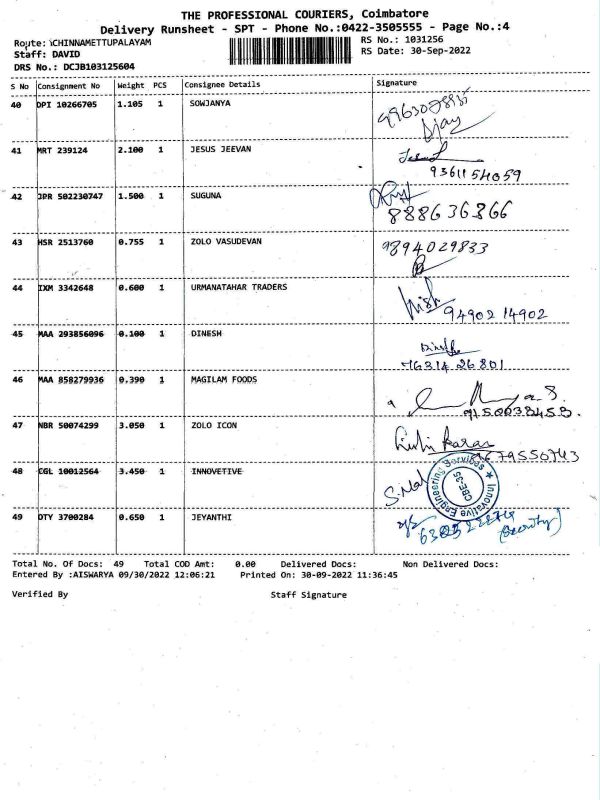 THE PROFESSIONAL COURIERS, Coimbatore
Delivery Runsheet - SPT - Phone No.:0422-3505555 - Page No.:4
Route: CHINNAMETTUPALAYAM
RS No.: 1031256
Staff: DAVID
RS Date: 30-Sep-2022
DRS No.: DCJB103125604
S No Consignment No Weight PCS Consignee Details Signature
40 DPI 10266705 1.105 1 SOWJANYA
41 MRT 239124 2.100 1 JESUS JEEVAN
9361154059
42 JPR 502230747 1.500 1 SUGUNA
888636366
43 HSR 2513760 0.755 1 ZOLO VASUDEVAN 9894029833
44 IXM 3342648 0.600 1 URMANATAHAR TRADERS
9490214902
45 MAA 293856096 0.100 1 DINESH
7631426801
46 MAA 858279936 0.390 1 MAGILAM FOODS
47 NBR 50074299 3.050 1 ZOLO ICON
9679550743
48 CGL 10012564 3.450 1 INNOVETIVE
Innovative Engineering Services
CBE-35
49 DTY 3700284 0.650 1 JEYANTHI
(Security)
Total No. Of Docs: 49 Total COD Amt: 0.00 Delivered Docs: Non Delivered Docs:
Entered By :AISWARYA 09/30/2022 12:06:21 Printed On: 30-09-2022 11:36:45
Verified By Staff Signature